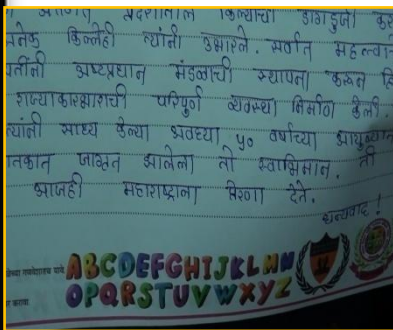 प्रदेशातील किल्ल्यांची डागडुजी
अनेक किल्लेही त्यांनी उभारले. सर्वात महत्वा
अष्टप्रधान मंडळाची स्थापना करून
राज्याकारभाराची परिपुर्ण व्यवस्था निर्माण केली.
त्यांनी साध्य केल्या अवघ्या ५० वर्षाच्या आयुष्यात
जागृत झालेला तो स्वाभिमान. ती
आजही महाराष्ट्राला प्रेरणा देते.
धन्यवाद!
ABCDEFGHIJKLMN
OPQRSTUVWXYZ